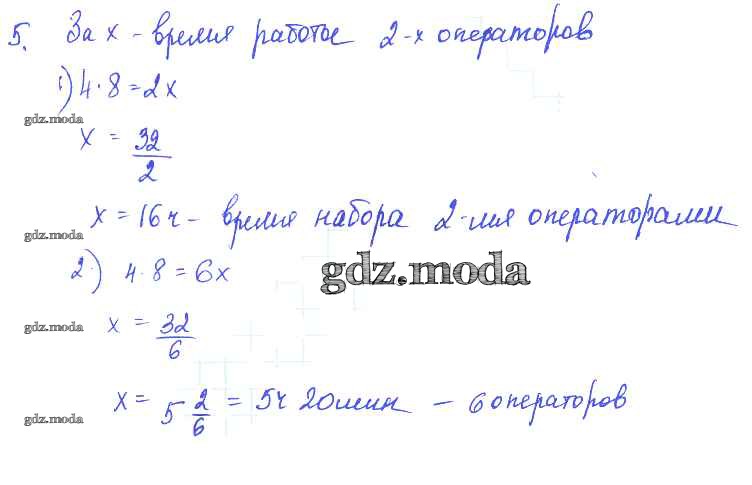 5. За x - время работы 2-х операторов
1) 4·8=2x
gdz.moda
x = 32/2
x = 16ч - время набора 2-мя операторами
gdz.moda
2) 4·8=6x
gdz.moda
x = 32/6
gdz.moda
x = 5 2/6 = 5ч 20мин - 6 операторов
gdz.moda